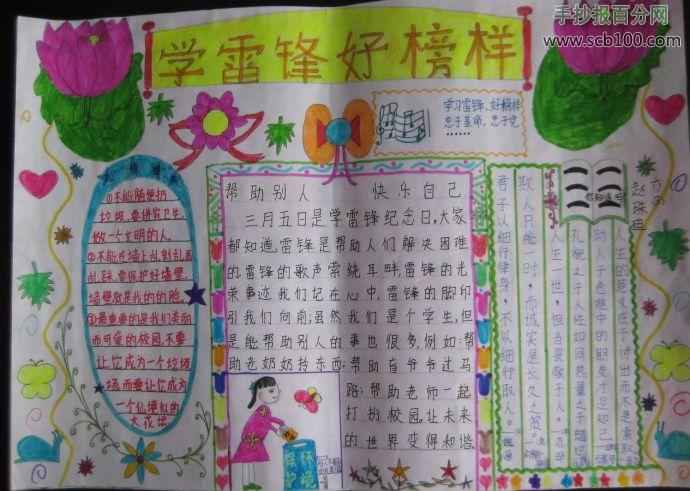 手抄报百分网
www.scb100.com
学雷锋好榜样
学习雷锋、好榜样
忠于革命、忠于党
……
①不能随便扔
垃圾,要讲究卫生,
做一个文明的人。
②不能在墙上乱刻乱画
乱踩,要保护好墙壁,
墙壁就是我的的脸。
③最重要的是我们美丽
而可爱的校园,不要
让它成为一个垃圾
场,而要让它成为
一个仙境似的
大花坛
帮助别人 快乐自己
三月五日是学雷锋纪念日,大家
都知道,雷锋是帮助人们解决困难
的,雷锋的歌声萦绕耳畔,雷锋的光
荣事迹我们记在心中,雷锋的脚印
引我们向前;虽然我们是个学生,但
是能帮助别人的事也很多,例如:帮
助老奶奶拎东西;帮助盲爷爷过马
路;帮助老师一起
打扮校园,让未来
的世界变得和谐
环境
保护
人生的意义在于付出而不是索取
助人乃
人生一世,但当畏敬于人
取人只能一时,而诚实是长久之策。
君子以细行律身,不以细行取人。